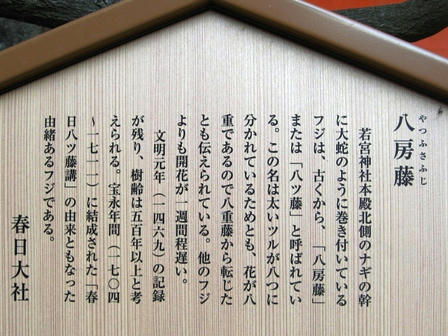 やつふさふじ
八房藤
若宮神社本殿北側のナギの幹
に大蛇のように巻き付いている
フジは、古くから、「八房藤」
または「八ツ藤」と呼ばれてい
る。この名は太いツルが八つに
分かれているためとも、花が八
重であるので八重藤から転じた
とも伝えられている。他のフジ
よりも開花が一週間程遅い。
文明元年（一四六九）の記録
が残り、樹齢は五百年以上と考
えられる。宝永年間（一七〇四
～一七一一）に結成された「春
日八ツ藤講」の由来ともなった
由緒あるフジである。
春日大社